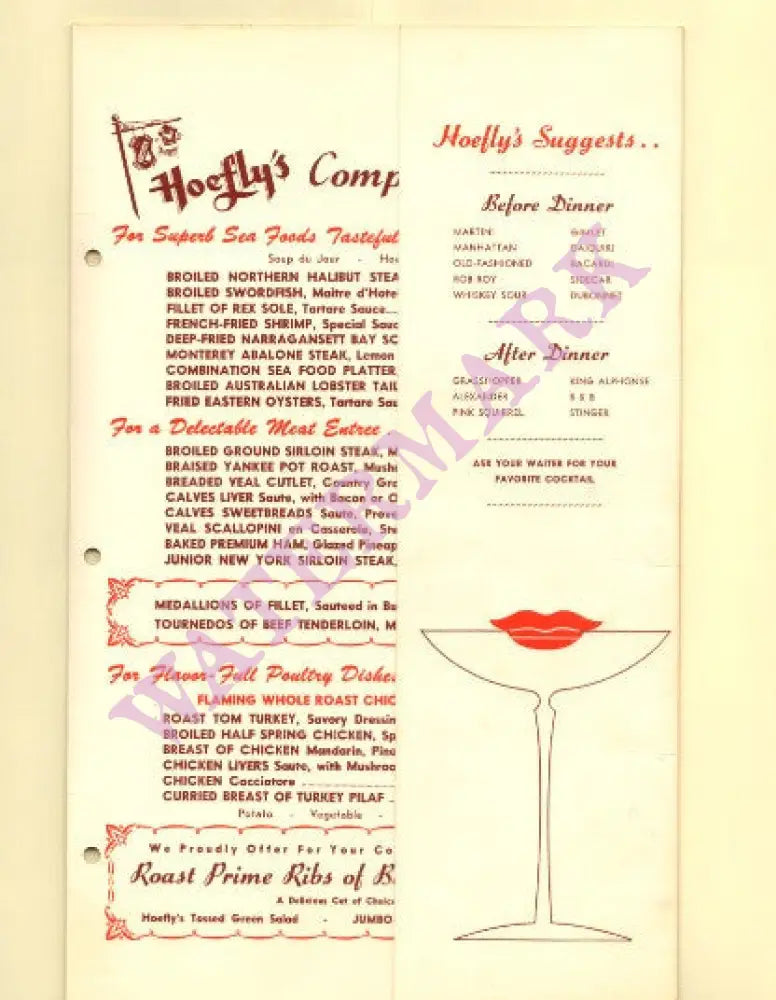 Hoefly's Comp
For Superb Sea Foods Tasteful
Soup du Jour - Ho
BROILED NORTHERN HALIBUT STEA
BROILED SWORDFISH, Maitre d'Hote
FILLET OF REX SOLE, Tartare Sauce...
FRENCH-FRIED SHRIMP, Special Sauc
DEEP-FRIED NARRAGANSETT BAY SC
MONTEREY ABALONE STEAK, Lemon
COMBINATION SEA FOOD PLATTER,
BROILED AUSTRALIAN LOBSTER TAIL
FRIED EASTERN OYSTERS, Tartare Sau
For a Delectable Meat Entree
BROILED GROUND SIRLOIN STEAK, M
BRAISED YANKEE POT ROAST, Mush
BREADED VEAL CUTLET, Country Gra
CALVES LIVER Saute, with Bacon or O
CALVES SWEETBREADS Saute, Prove
VEAL SCALLOPINI en Casserole, Ste
BAKED PREMIUM HAM, Glazed Pineap
JUNIOR NEW YORK SIRLOIN STEAK,
MEDALLIONS OF FILLET, Sauteed in Bu
TOURNEDOS OF BEEF TENDERLOIN, M
For Flavor-Full Poultry Dishes
FLAMING WHOLE ROAST CHIC
ROAST TOM TURKEY, Savory Dressin
BROILED HALF SPRING CHICKEN, Sp
BREAST OF CHICKEN Mandarin, Pine
CHICKEN LIVERS Saute, with Mushroo
CHICKEN Cacciatore
CURRIED BREAST OF TURKEY PILAF
Potato - Vegetable -
We Proudly Offer For Your Co
Roast Prime Ribs of B
A Delicious Cut of Choice
Hoefly's Tossed Green Salad - JUMBO
Hoefly's Suggests . .
Before Dinner
MARTINI GIMLET
MANHATTAN DAIQUIRI
OLD-FASHIONED BACARDI
ROB ROY SIDECAR
WHISKEY SOUR DUBONNET
After Dinner
GRASSHOPPER KING ALPHONSE
ALEXANDER B & B
PINK SQUIRREL STINGER
ASK YOUR WAITER FOR YOUR
FAVORITE COCKTAIL
WATERMARK